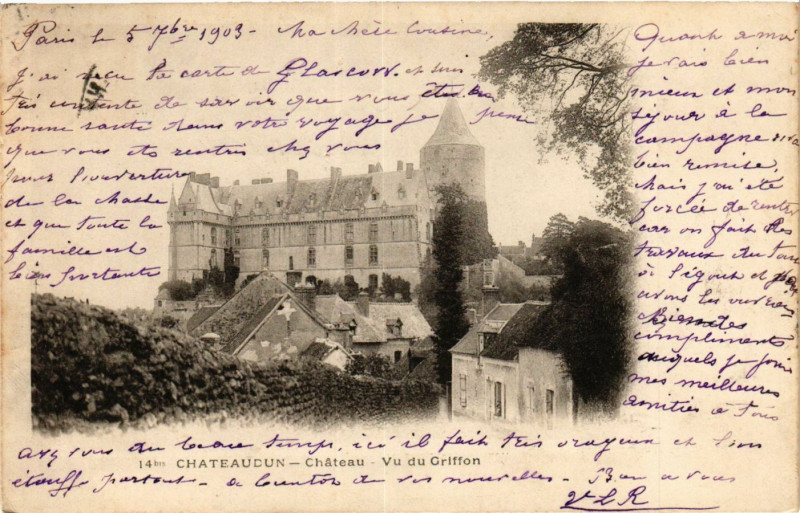 Paris le 5 7bre 1903 - Ma chère Cousine,
J'ai reçu la carte de Glascow. et suis
très contente de savoir que vous êtes en
bonne santé dans votre voyage je pense
que vous êtes rentrés chez vous
pour l'ouverture
de la chasse
et que toute la
famille est
bien portante
Quant à moi
je vais bien
mieux et mon
séjour à la
campagne m'a
bien remise,
Mais j'ai été
forcée de rentrer
car on fait des
travaux du tout
à l'égout et nous
avons les ouvriers
compliments
auxquels je joins
mes meilleures
amitiés à tous
avez vous du beau temps, ici il fait très orageux et l'on
14bis CHATEAUDUN - Château - Vu du Griffon
étouffe partout - a bientôt de vos nouvelles - Bien a vous
VLR